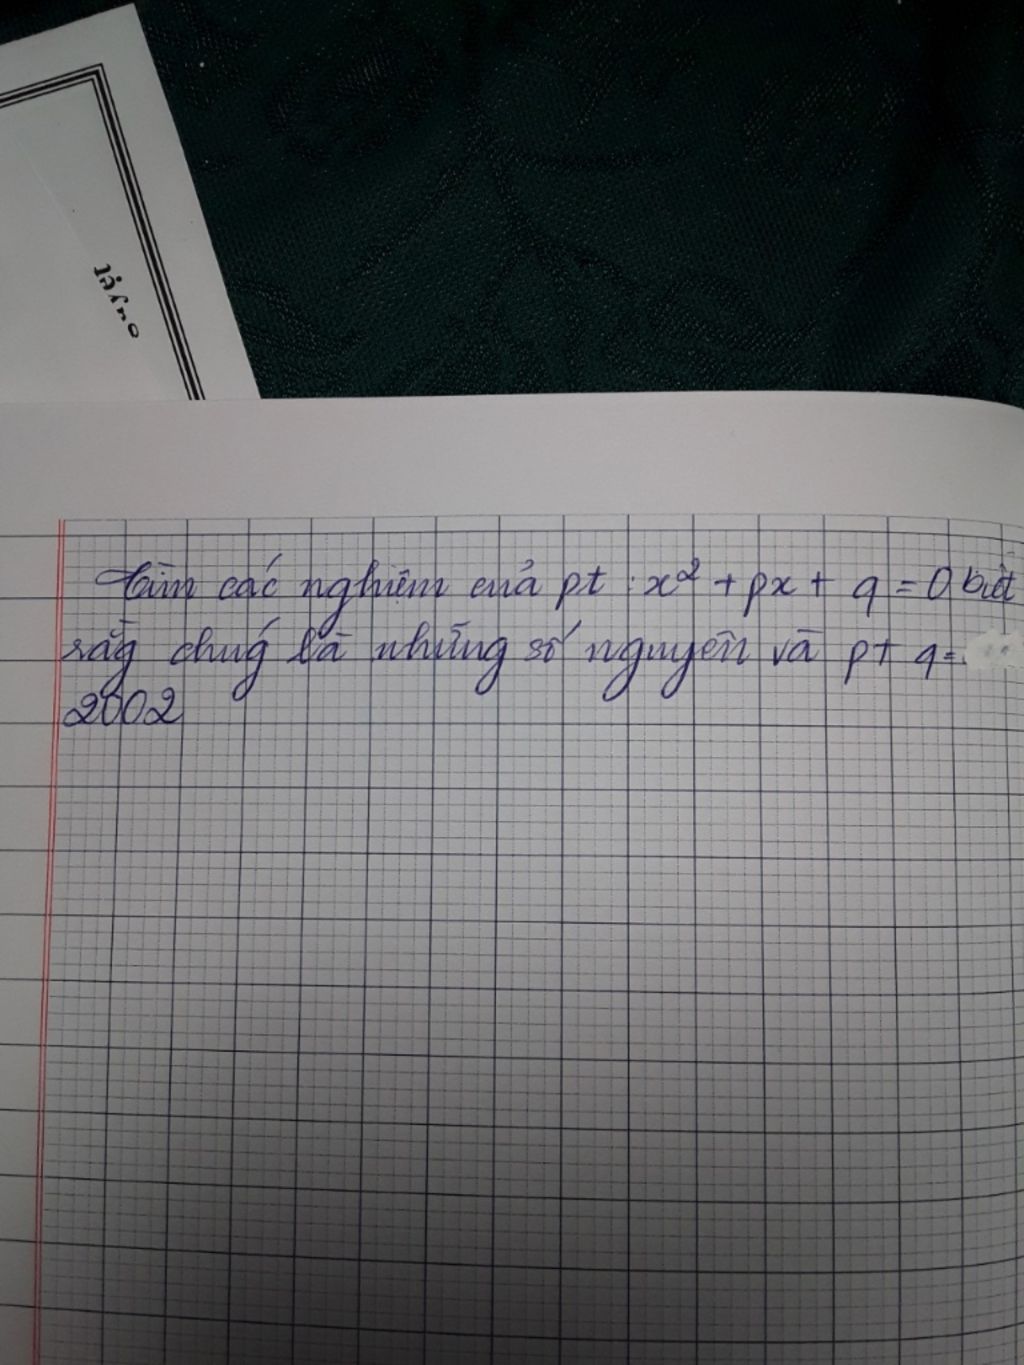 quyết
Tìm các nghiệm của pt : x² + px + q = 0 biết
rằg chúg là những số nguyên và p + q =
2002